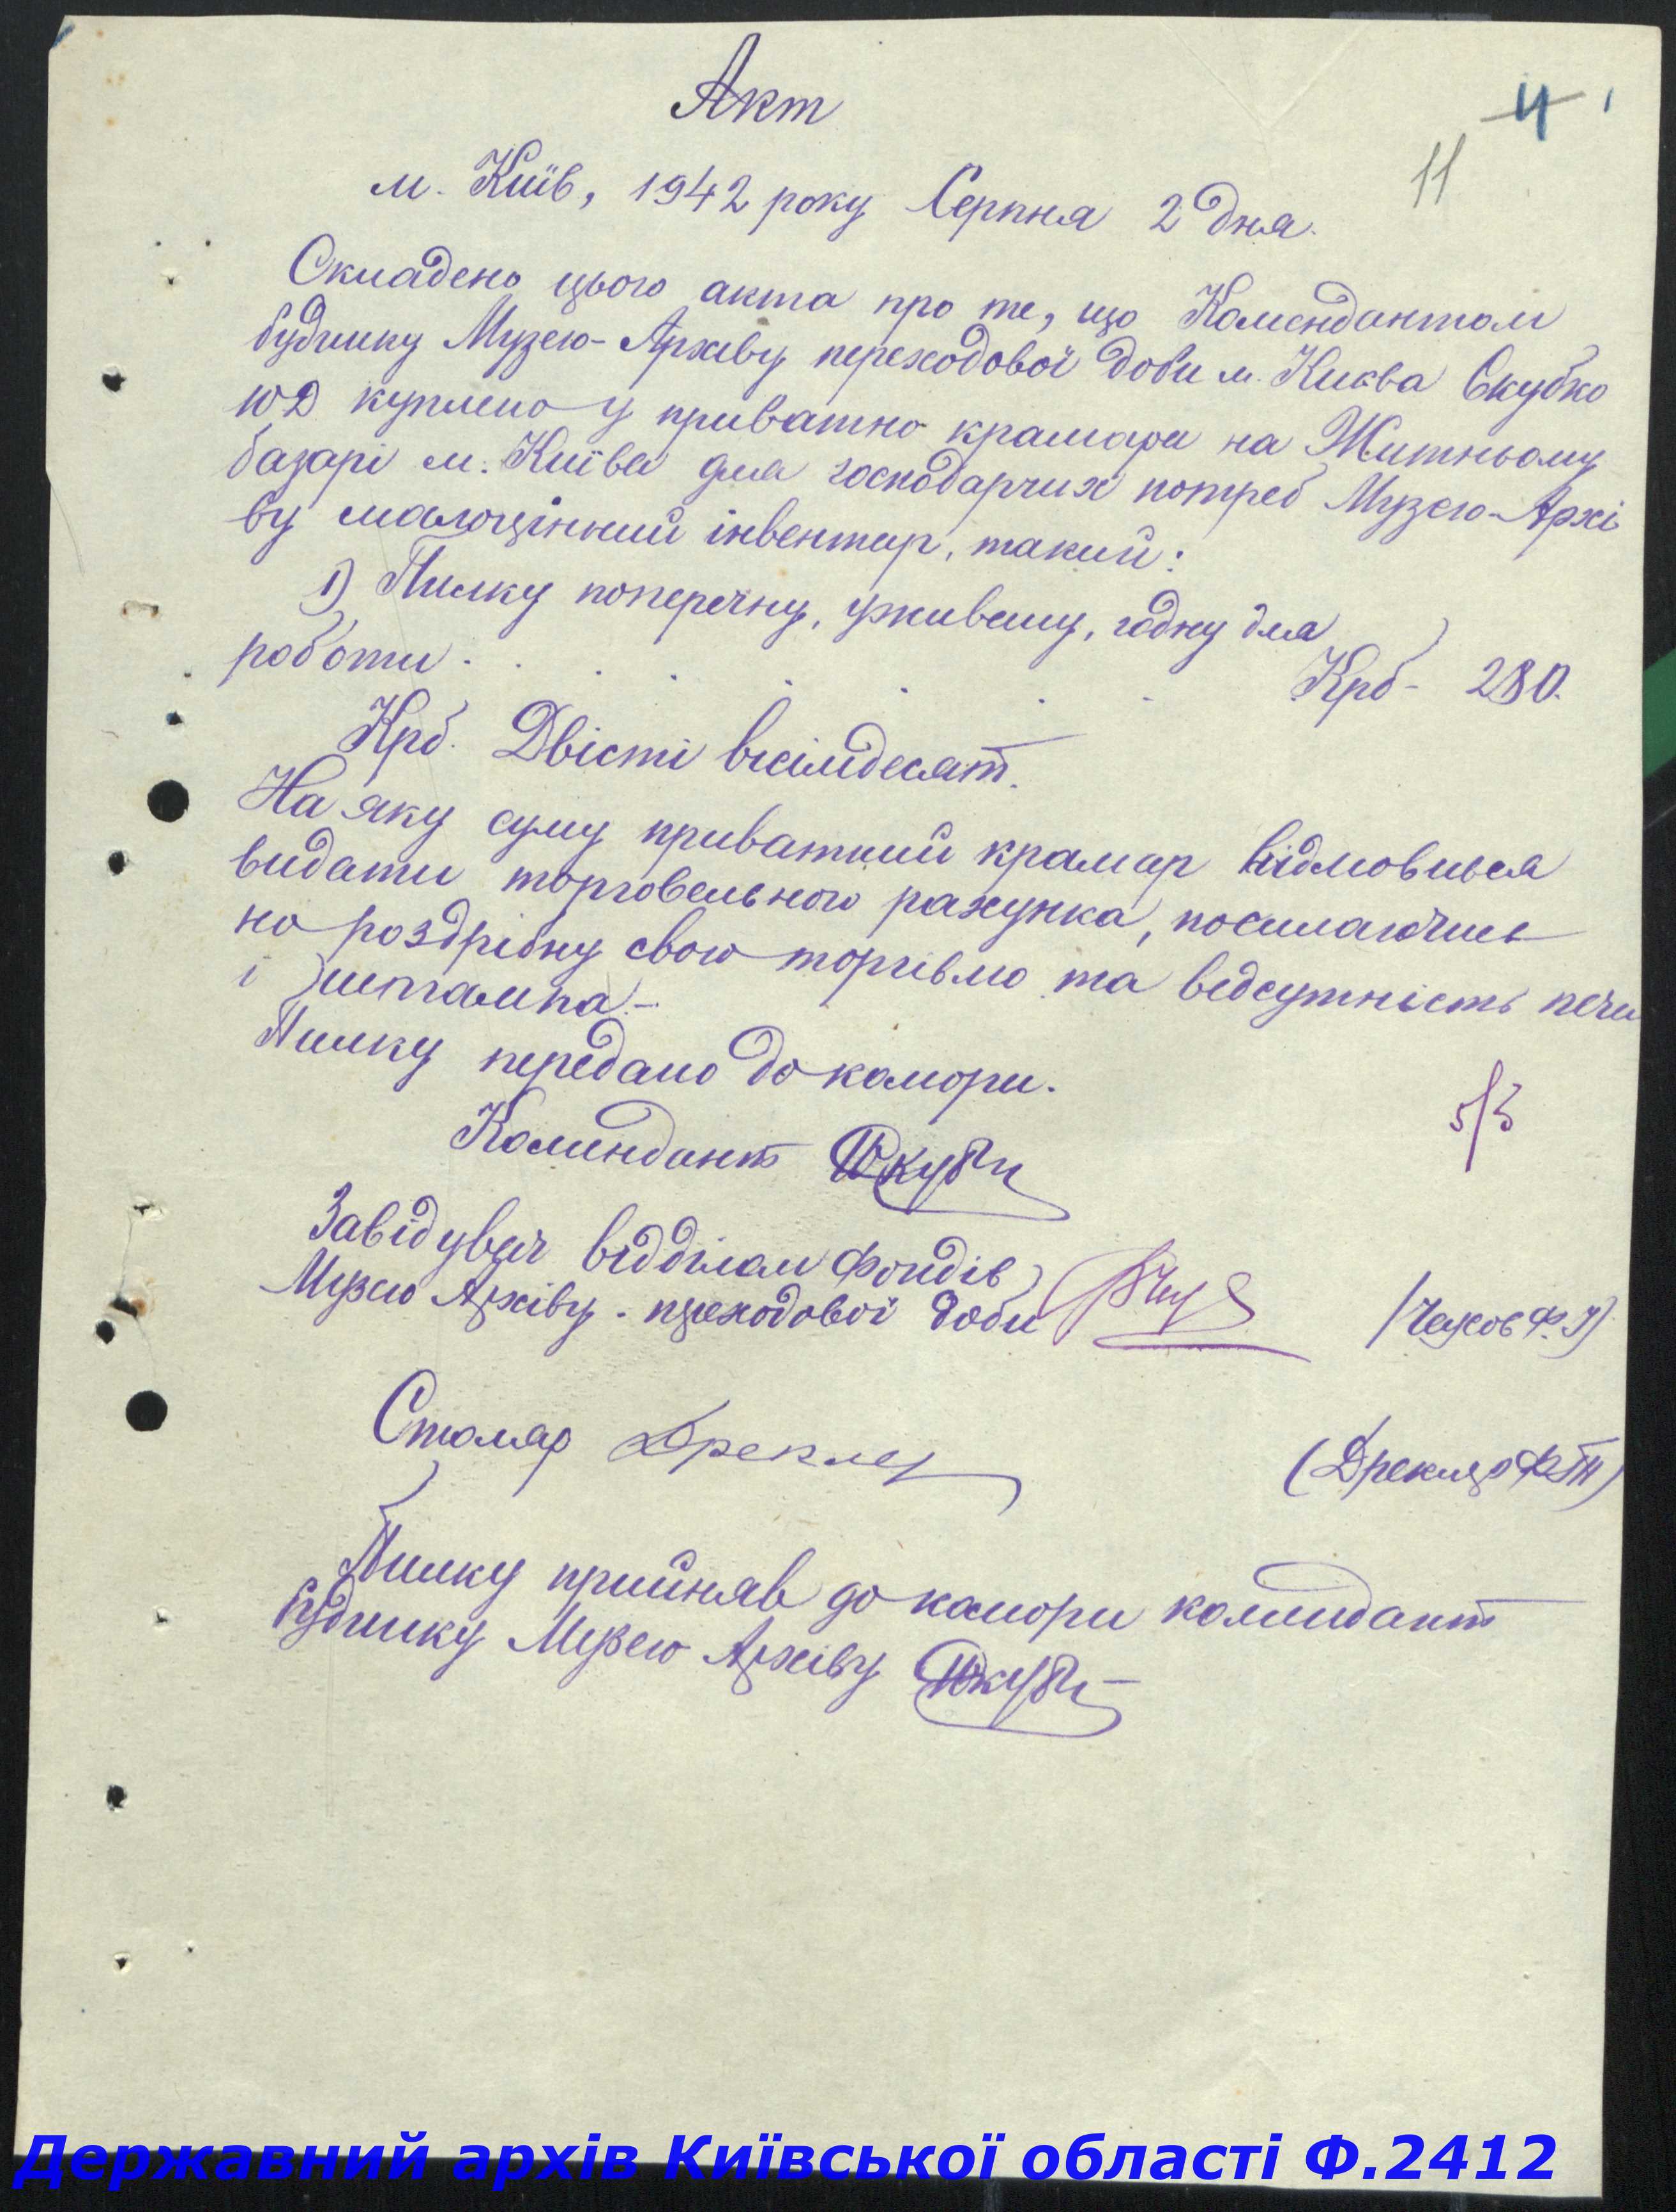 Акт
4
11
м. Київ, 1942 року Серпня 2 дня.
Складено цього акта про те, що Комендантом
будинку Музею-Архіву переходової доби м. Києва Скубко
ЮД куплено у приватно крамаря на Житньому
базарі м. Київа для господарчих потреб Музею-Архі
ву малоцінний інвентар, такий:
1) Пилку поперечну, уживану, годну для
роботи . . . . . . . Крб - 280.
Крб. Двісті вісімдесят.
На яку суму приватний крамар відмовився
видати торговельного рахунка, посилаючись
на роздрібну свою торгівлю та відсутність печа
і штампа.-
Пилку передано до комори.
5/5
Комендант
Завідувач відділом Фондів
Музею Архіву - переходової доби
Столяр Дреклер
(Дреклер Ф.П)
Пилку прийняв до комори комендант
будинку Музею Архіву
Державний архів Київської області Ф.2412